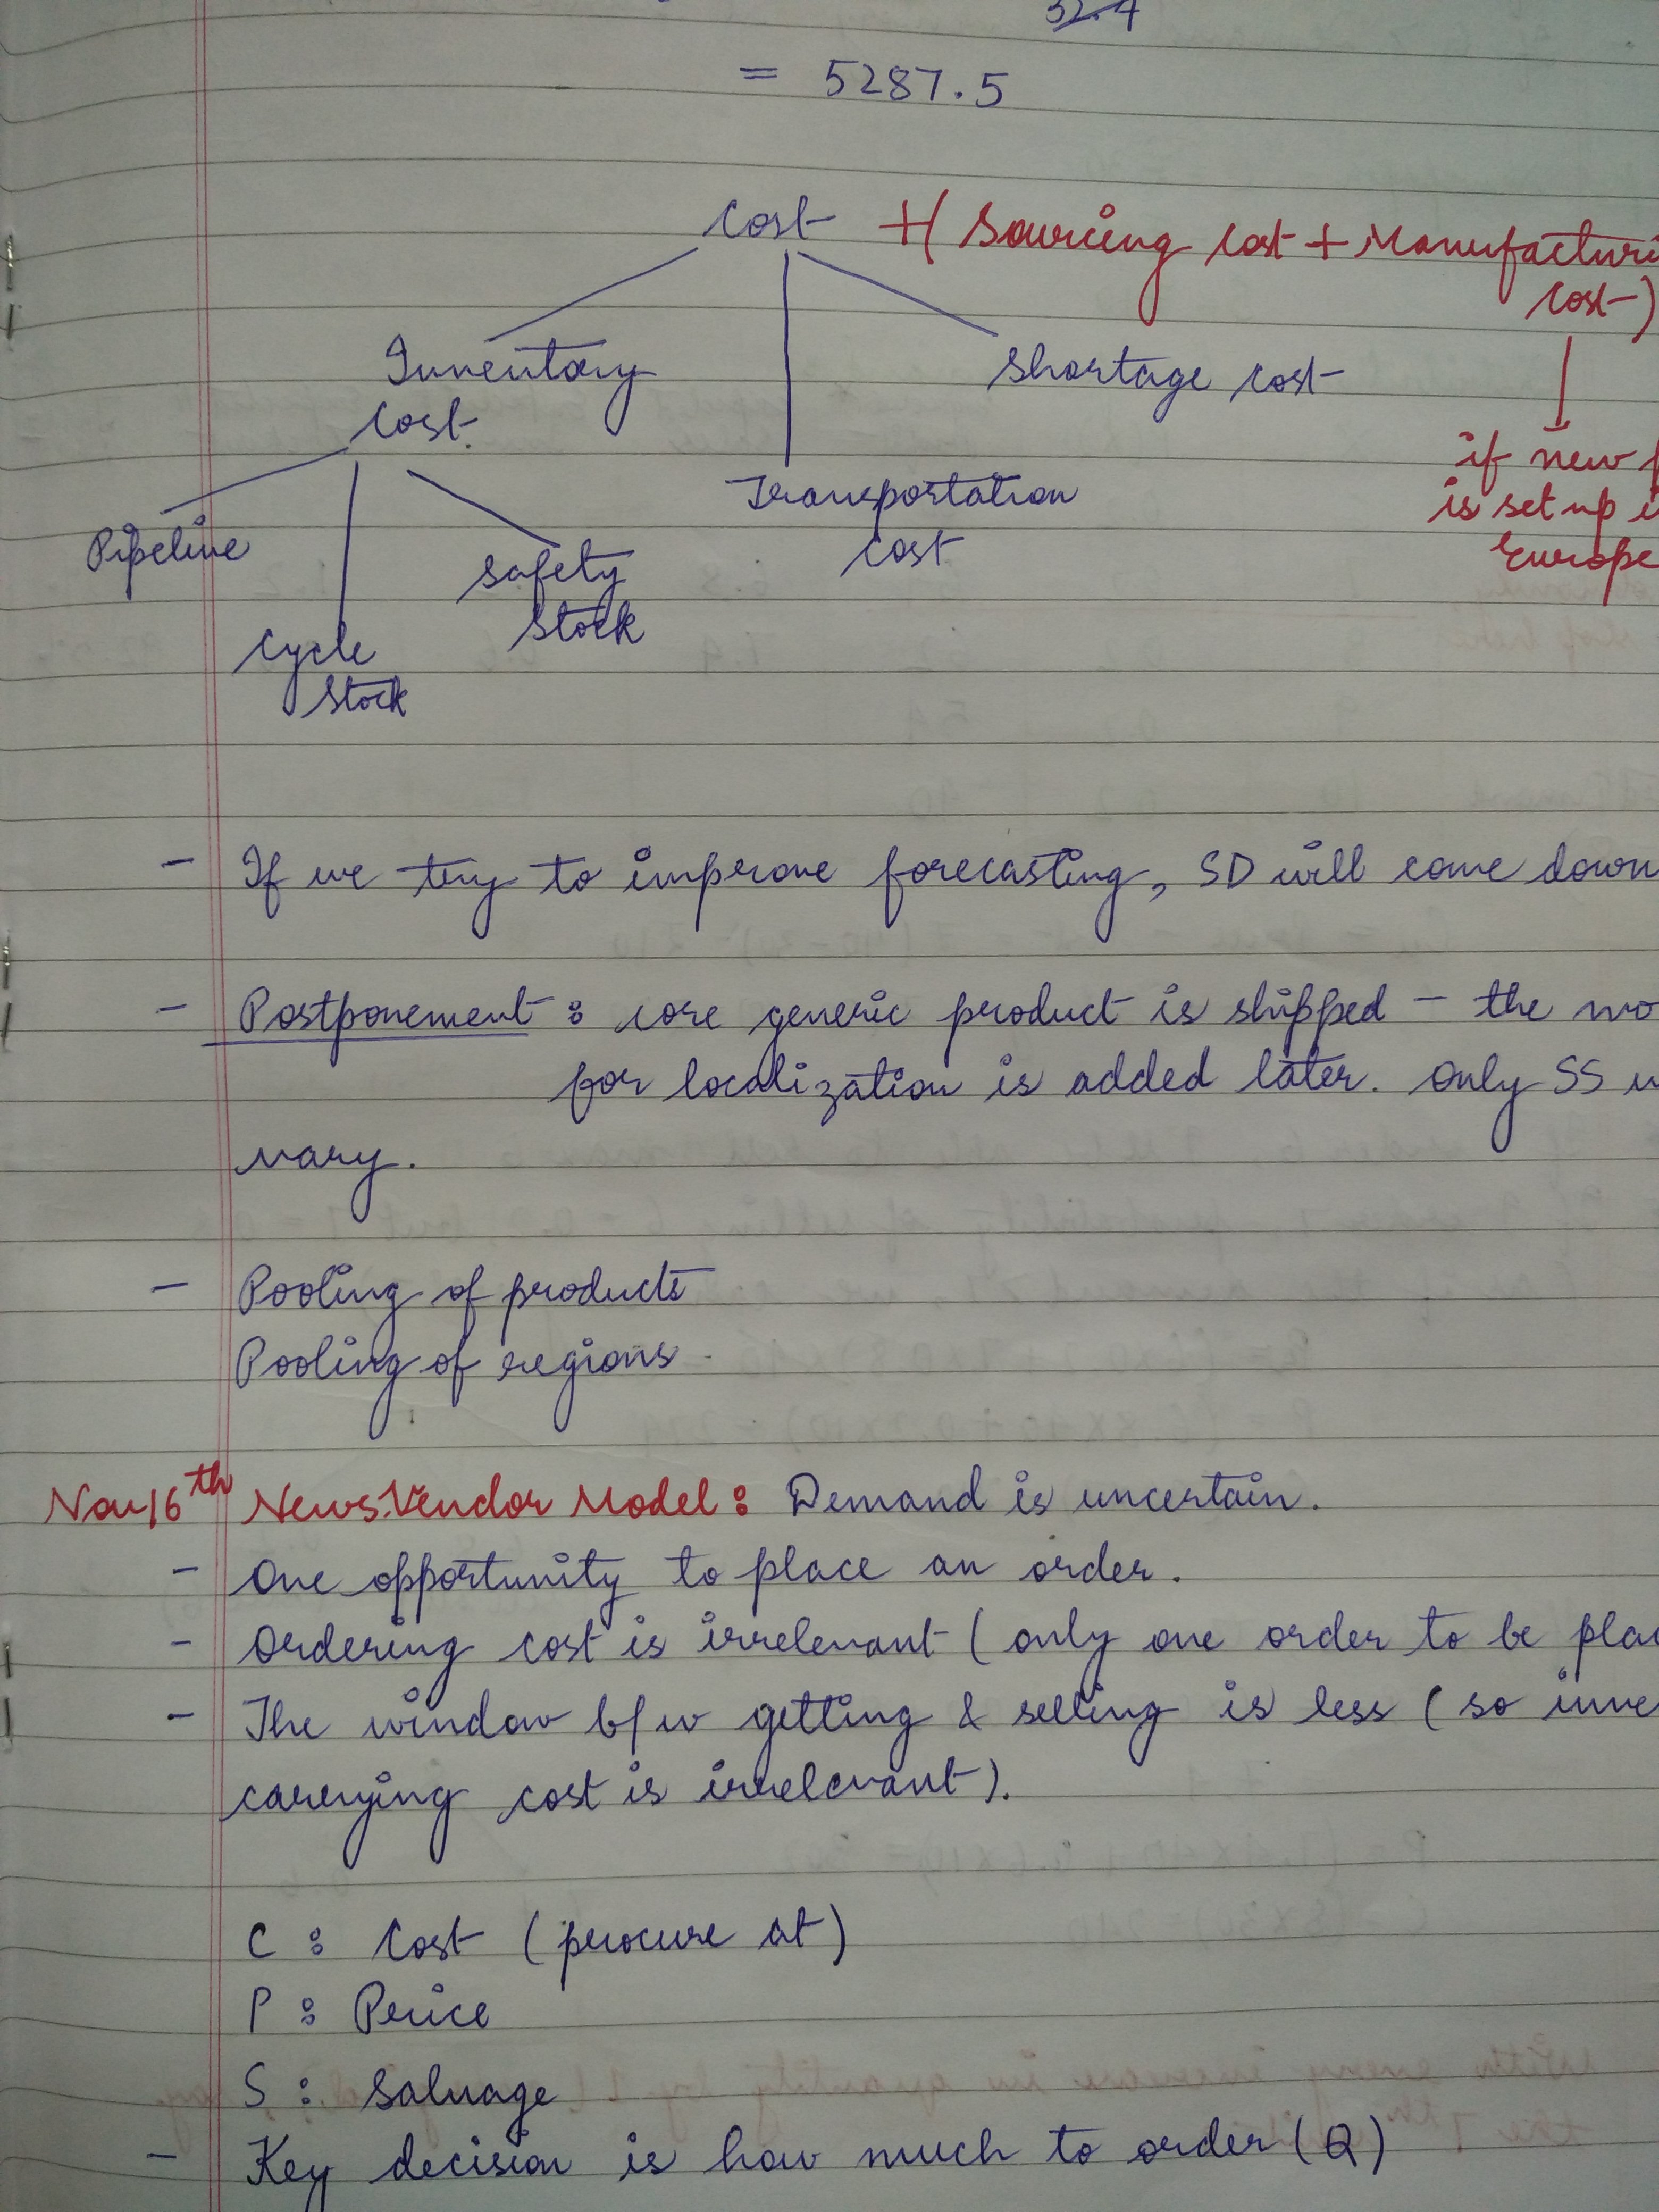 = 5287.5
Cost + ( Sourcing Cost + Manufacturi
Cost )
Inventory
Cost
Shortage Cost
if new
is set up
Europe
Transportation
Cost
Pipeline
Safety
Stock
Cycle
Stock
- If we try to improve forecasting, SD will come down
- Postponement : core generic product is shipped - the mo
for localization is added later. Only SS
vary.
- Pooling of products
Pooling of regions
Nov 16th News Vendor Model : Demand is uncertain.
- One opportunity to place an order.
- Ordering cost is irrelevant ( only one order to be plac
- The window b/w getting & selling is less ( so inve
carrying cost is irrelevant ).
C : Cost ( procure at )
P : Price
S : Salvage
- Key decision is how much to order ( Q )